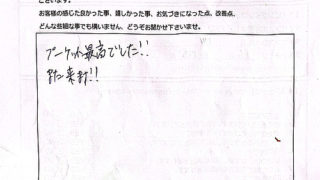 ございます。
お客様の感じた良かった事、嬉しかった事、お気づきになった点、改善点、
どんな些細な事でも構いません、どうぞお聞かせ下さいませ。
プーケット最高でした!!
また来ます!!